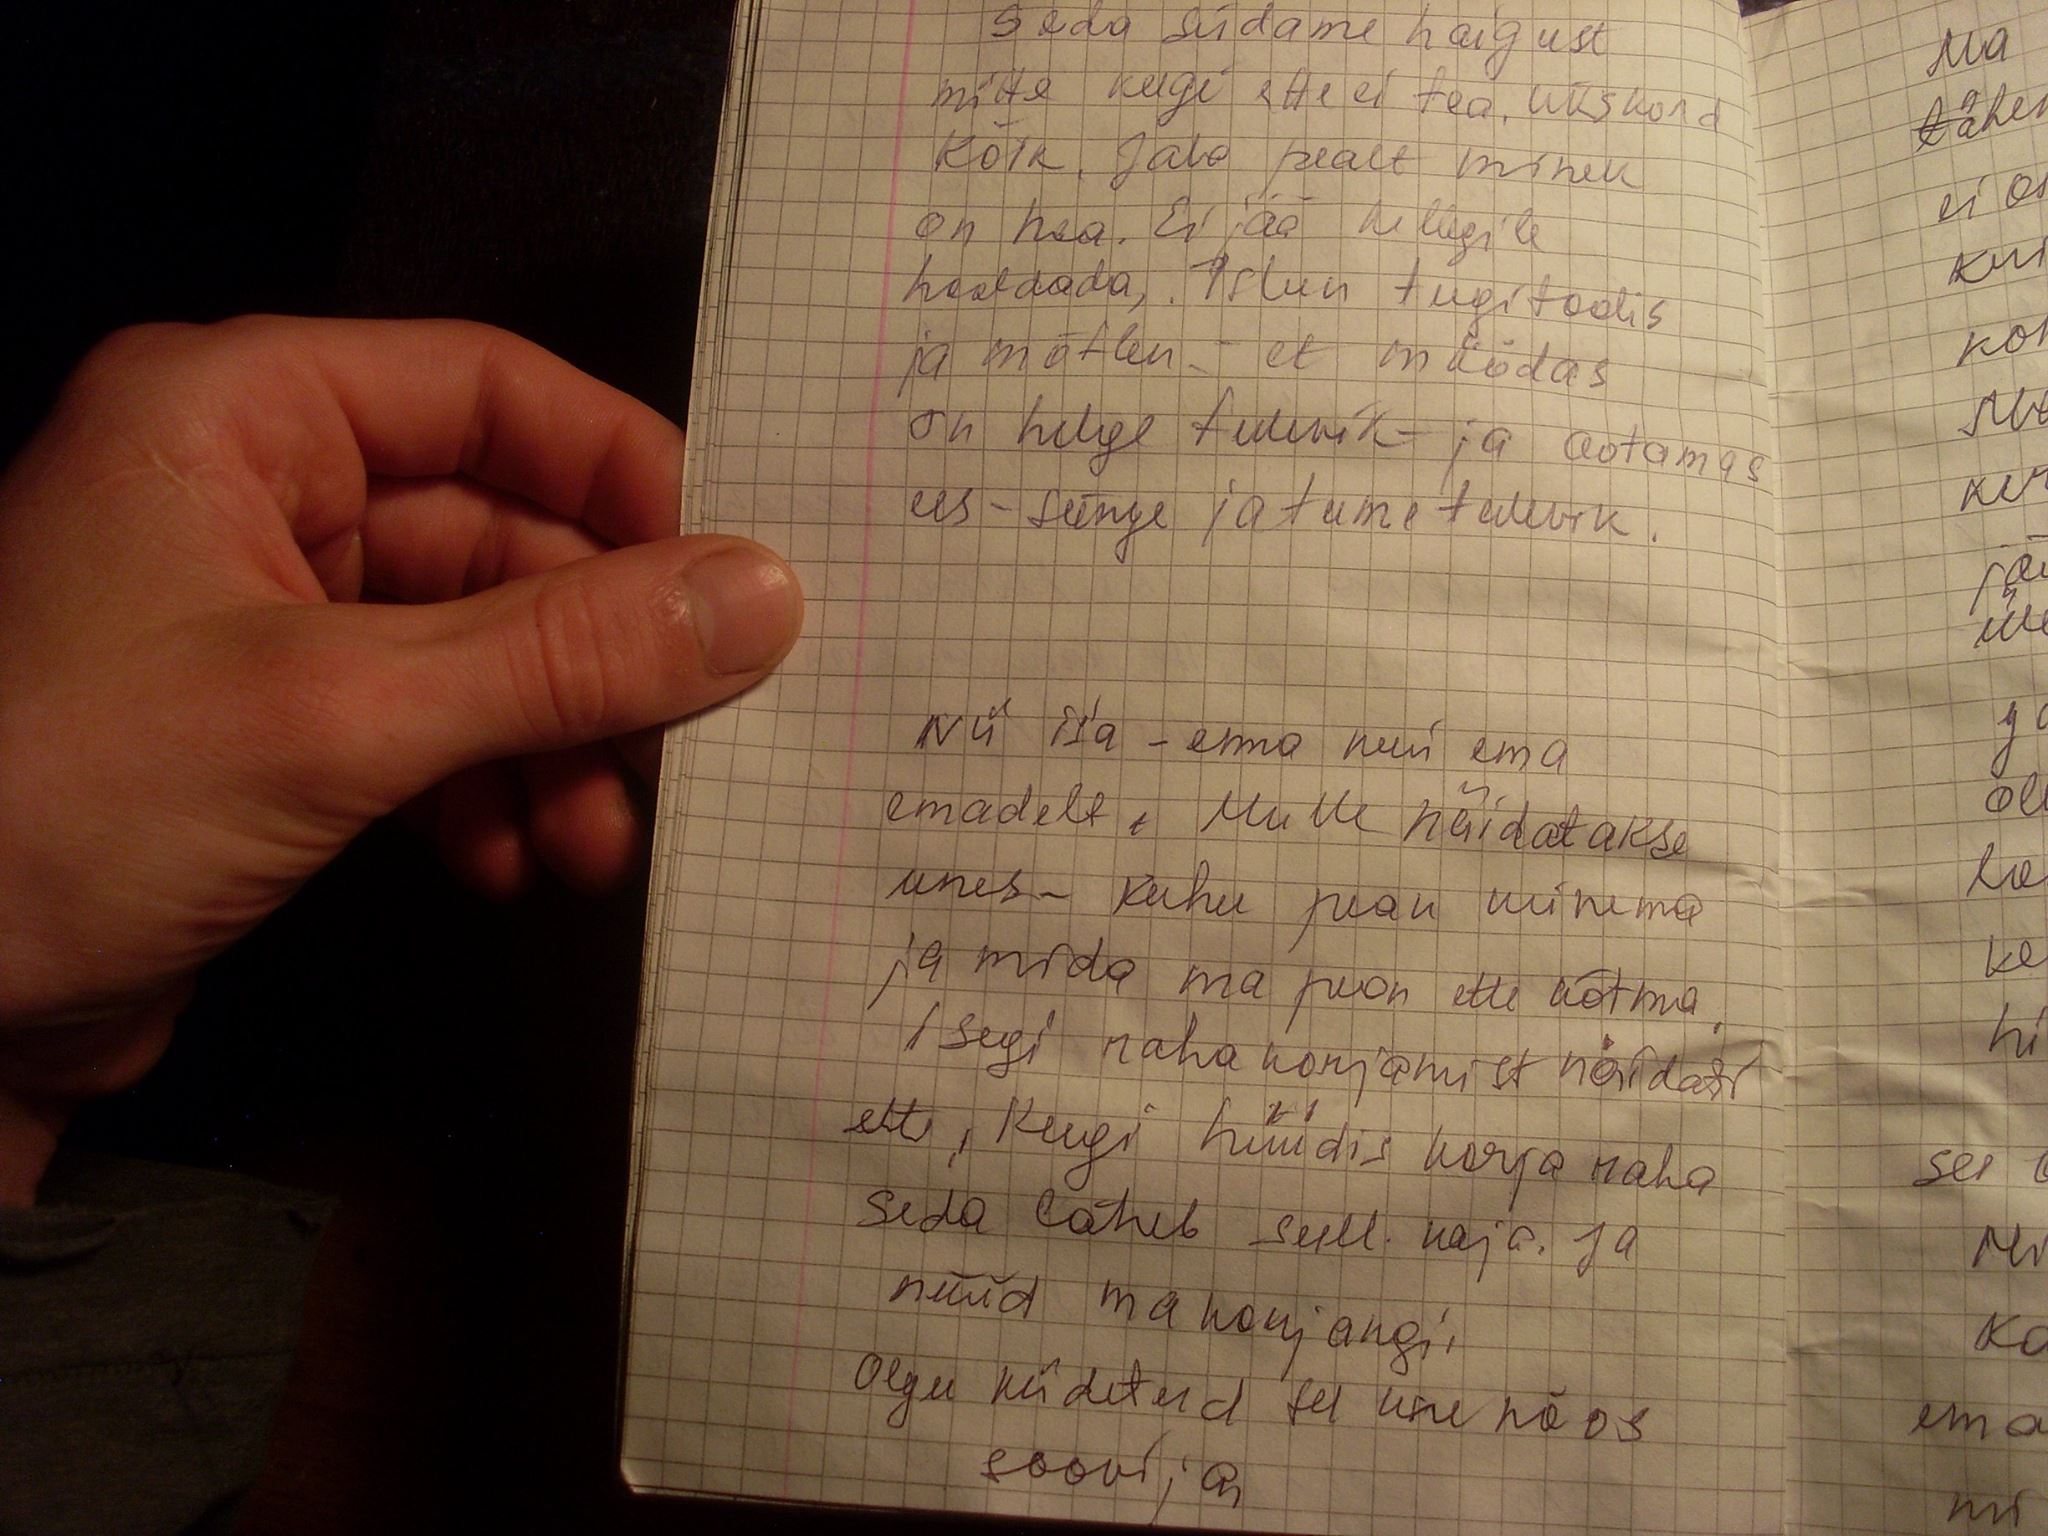 Seda südame haigust
mitte keegi ette ei tea. ükskord
kõik. Jala pealt minek
on hea. Ei jää kellegile
hooldada,. Istun tugitoolis
ja mõtlen - et möödas
on helge tulevik - ja ootamas
ees - sünge ja tume tulevik.
Nii isa - ema kui ema
emadelt. Mulle näidatakse
unes - kuhu pean minema
ja mida ma pean ette võtma,
isegi raha korjamist näidati
ette, keegi hüüdis korja raha
seda läheb sull. vaja. Ja
nüüd ma korjangi.
Olgu kiidetud see unenäos
soovija
Ma
ei
ema